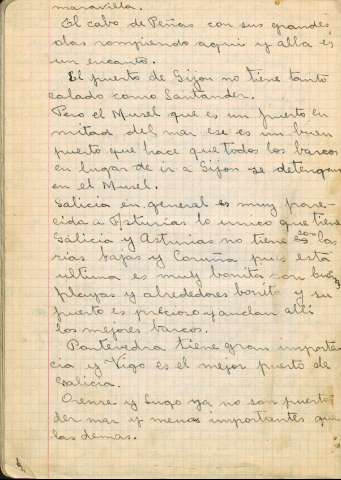 maravilla.
El cabo de Peñas con sus grandes
olas rompiendo aqui y alla es
un encanto.
El puerto de Gijon no tiene tanto
calado como Santander.
Pero el Musel que es un puerto en
mitad del mar ese es un buen
puerto que hace que todos los barcos
en lugar de ir a Gijon se detengan
en el Musel.
Galicia en general es muy pare-
cida a Asturias lo unico que tiene
Galicia y Asturias no tiene son las
rias bajas y Coruña pues esta
ultima es muy bonita con buenas
playas y alrededores bonito y su
puerto es precioso y anclan alli
los mejores barcos.
Pontevedra tiene gran importan
cia y Vigo es el mejor puerto de
Galicia.
Orense y Lugo ya no son puerto
der mar y menos importantes que
las demas.